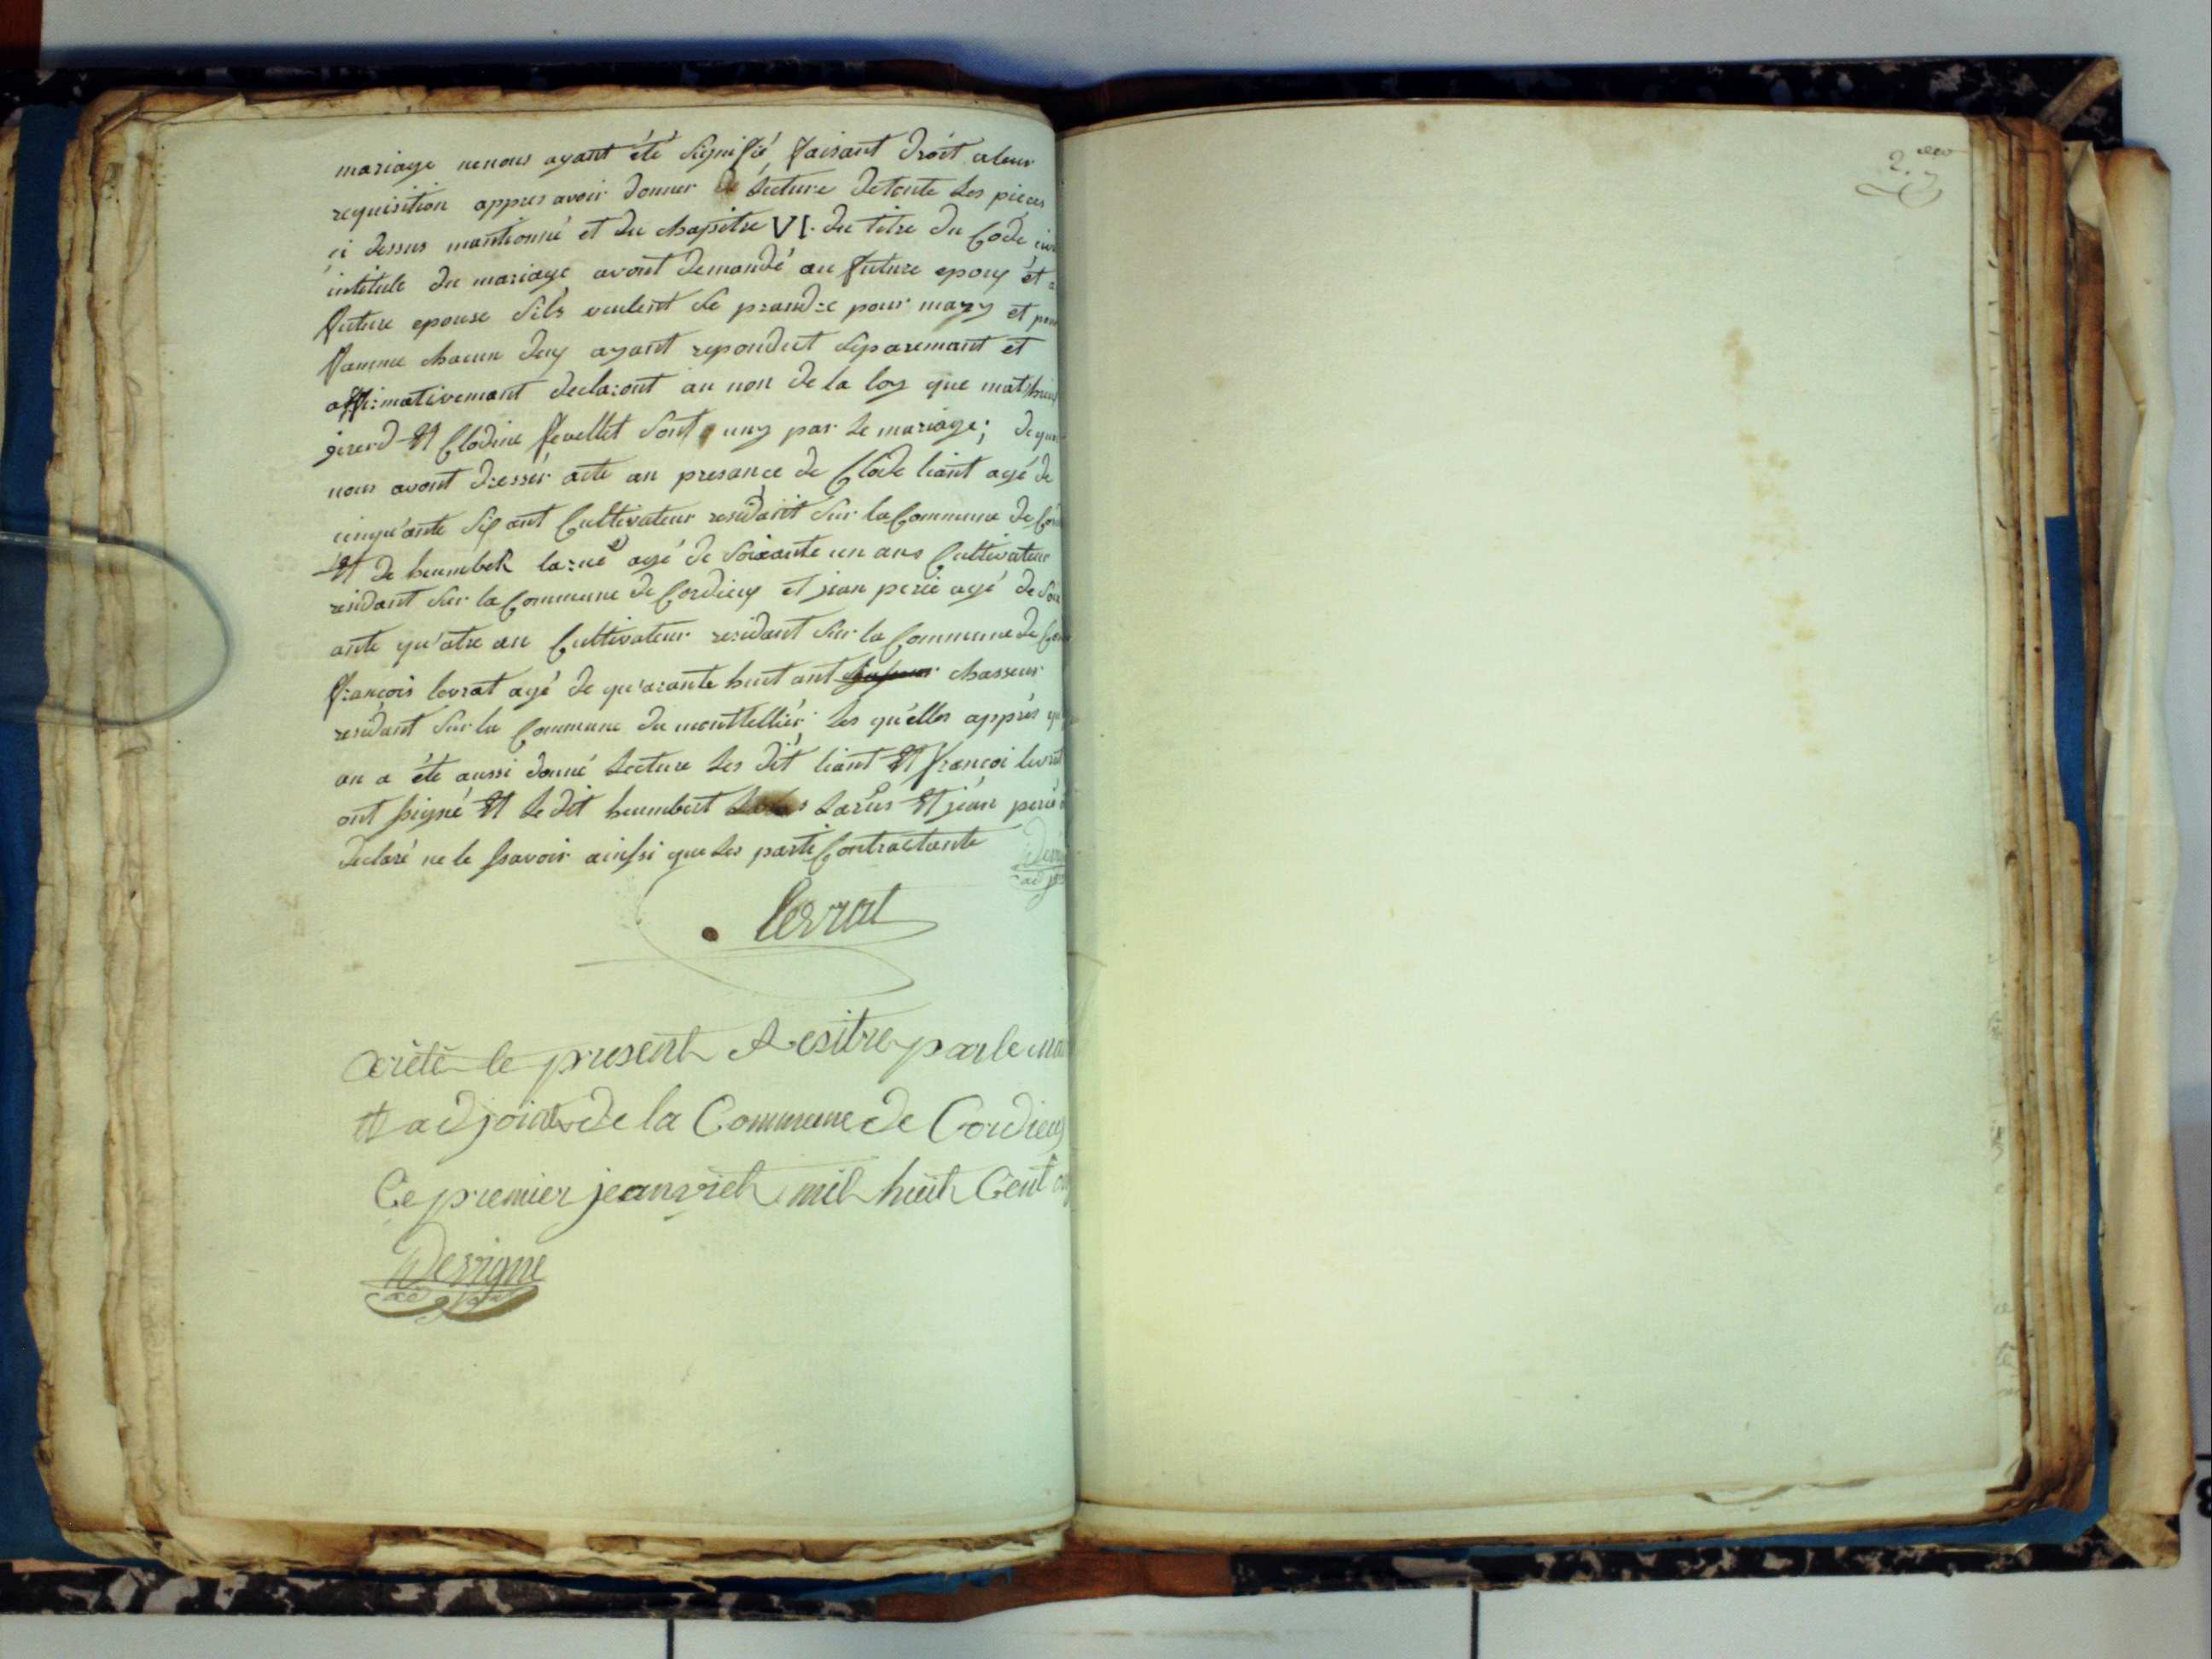 mariage ne nous ayant été signifié, faisant droit a leur
requisition appres avoir donner lecture de toute les pièces
ci dessus mantionné et du chapitre VI. du titre du Code
intitule du mariage avont demandé au future epoux et
future epouse s'ils veulent se prandre pour mary et
famme chacun deux ayant repondeet separemant et
affirmativemant declaront au non de la loy que mathieu
girerd Et Clodine fevellet sont uny par le mariage; de
nous avont dressér acte an presance de Clode liant agé de
cinqu'ante six ant Cultivateur residant sur la Commune de
Et de heumbek larue agé de soixante un ans Cultivateur
residant sur la Commune de Cordieux et jean perié agé de
ante qu'atre an Cultivateur residant sur la Commune de
françois levrat agé de qu'arante huit ant chasseur
residant sur la Commune du montellier, les qu'elles apprés
on a été aussi donné lecture les dit liant Et françoi levrat
ont signé Et le dit heumbert larüs Et jean perié
declaré ne le ssavoir ainssi que les parti Contractante
levrat
arèté le present Resitre par le
Et adjoint de la Commune de Cordieux
Ce premier jeanvieh mil huit Cent
Dervigne
adjoint
2.